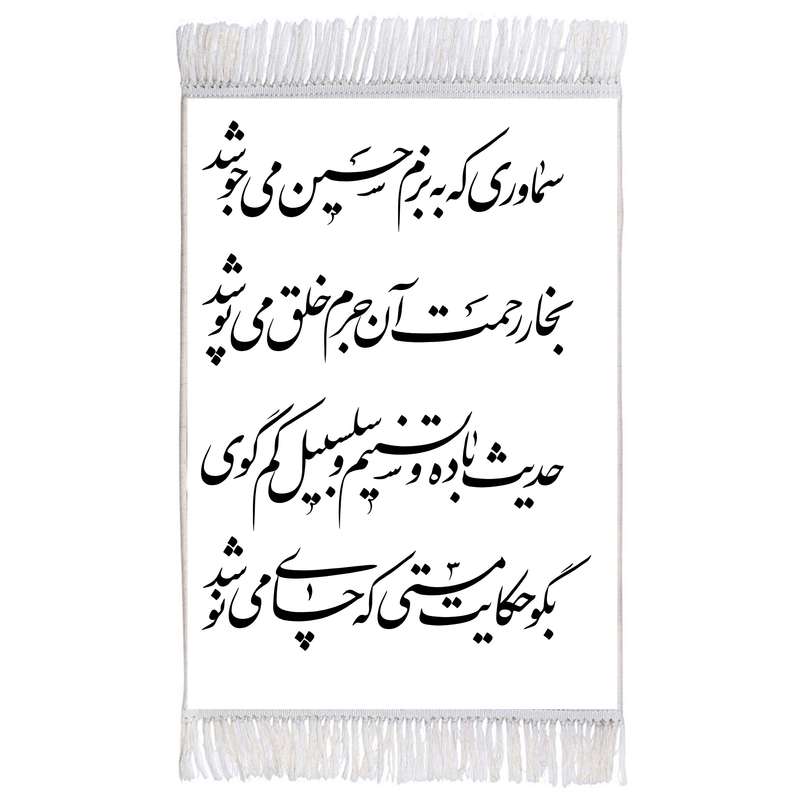 سماوری که به بزم حسین می جوشد
بخار رحمت آن جرم خلق می پوشد
حدیث باده و تسنیم و سلسبیل کم گوی
بگو حکایت مستی که چای می نوشد